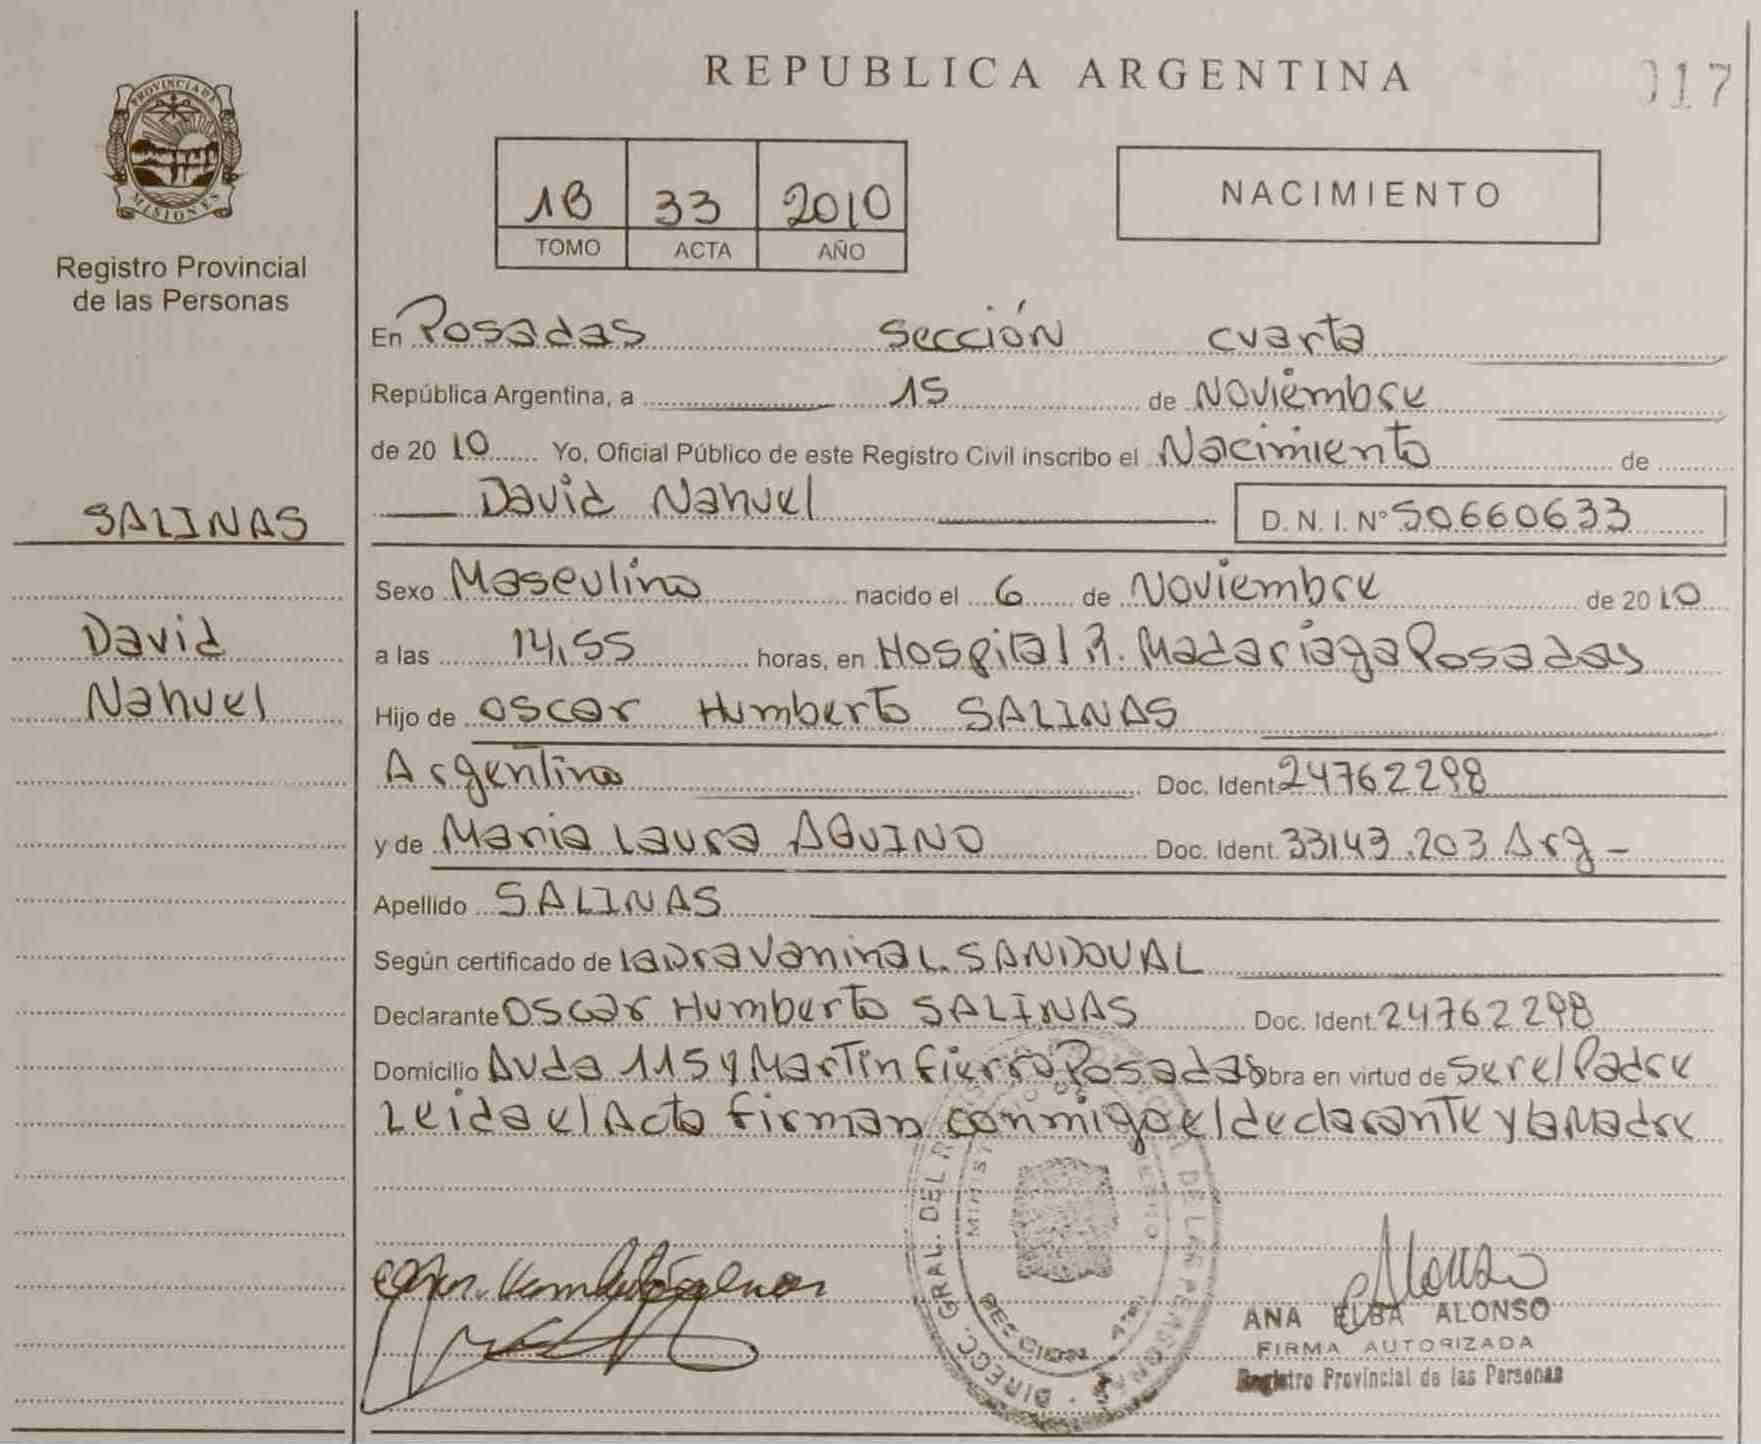 REPUBLICA ARGENTINA
017
PROVINCIA DE
MISIONES
Registro Provincial
de las Personas
1B 33 2010
TOMO ACTA AÑO
NACIMIENTO
En Posadas sección cuarta
República Argentina, a 15 de Noviembre
de 2010 Yo, Oficial Público de este Registro Civil inscribo el Nacimiento de
David Nahuel D. N. I. Nº 50660633
SALINAS
David
Nahuel
Sexo Masculino nacido el 6 de Noviembre de 2010
a las 14,55 horas, en Hospital R. Madariaga Posadas
Hijo de Oscar Humberto SALINAS
Argentino Doc. Ident. 24762298
y de Maria Laura AQUINO Doc. Ident. 33143.203 Arg -
Apellido SALINAS
Según certificado de Laura Vanina L. SANDOVAL
Declarante Oscar Humberto SALINAS Doc. Ident. 24762298
Domicilio Avda 115 y Martin Fierro Posadas obra en virtud de Ser el Padre
Leida el Acta firman conmigo el declarante y la Madre
ANA ELBA ALONSO
FIRMA AUTORIZADA
Registro Provincial de las Personas